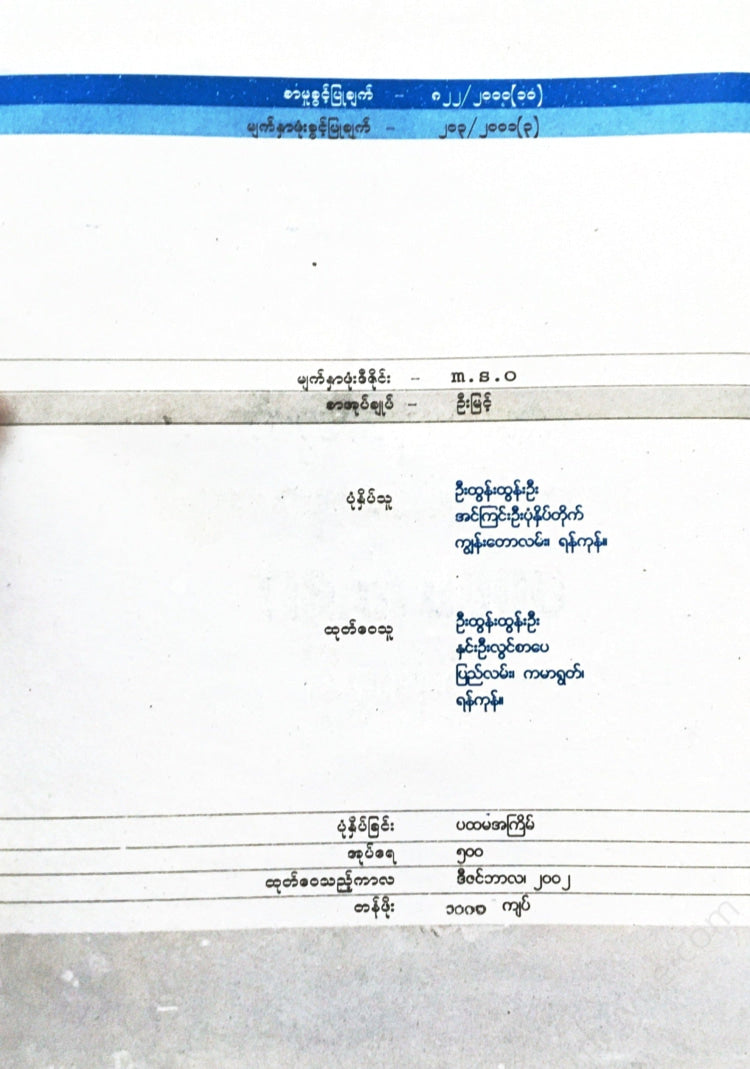 စာမူခွင့်ပြုချက် – ၈၂၂/၂၀၀၁(၁၁)
မျက်နှာဖုံးခွင့်ပြုချက် – ၂၀၃/၂၀၀၁(၃)
မျက်နှာဖုံးဒီဇိုင်း – m.s.o
စာအုပ်ချုပ် – ဦးမြင့်
ပုံနှိပ်သူ ဦးထွန်းထွန်းဦး
အင်ကြင်းဦးပုံနှိပ်တိုက်
ကျွန်းတောလမ်း၊ ရန်ကုန်။
ထုတ်ဝေသူ ဦးထွန်းထွန်းဦး
နှင်းဦးလွင်စာပေ
ပြည်လမ်း၊ ကမာရွတ်၊
ရန်ကုန်။
ပုံနှိပ်ခြင်း ပထမအကြိမ်
အုပ်ရေ ၅၀၀
ထုတ်ဝေသည့်ကာလ ဒီဇင်ဘာလ၊ ၂၀၀၂
တန်ဖိုး ကျပ်